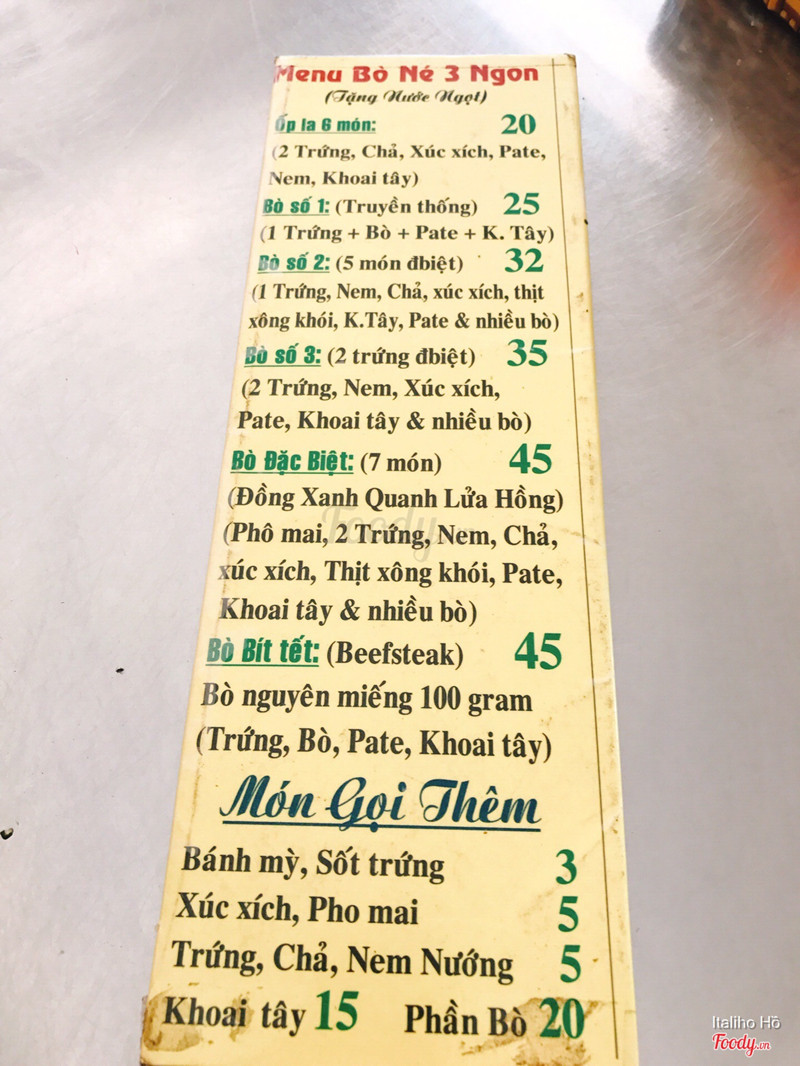 Menu Bò Né 3 Ngon
(Tặng Nước Ngọt)
Ốp la 6 món: 20
(2 Trứng, Chả, Xúc xích, Pate,
Nem, Khoai tây)
Bò số 1: (Truyền thống) 25
(1 Trứng + Bò + Pate + K. Tây)
Bò số 2: (5 món đbiệt) 32
(1 Trứng, Nem, Chả, xúc xích, thịt
xông khói, K.Tây, Pate & nhiều bò)
Bò số 3: (2 trứng đbiệt) 35
(2 Trứng, Nem, Xúc xích,
Pate, Khoai tây & nhiều bò)
Bò Đặc Biệt: (7 món) 45
(Đồng Xanh Quanh Lửa Hồng)
(Phô mai, 2 Trứng, Nem, Chả,
xúc xích, Thịt xông khói, Pate,
Khoai tây & nhiều bò)
Bò Bít tết: (Beefsteak) 45
Bò nguyên miếng 100 gram
(Trứng, Bò, Pate, Khoai tây)
Món Gọi Thêm
Bánh mỳ, Sốt trứng 3
Xúc xích, Pho mai 5
Trứng, Chả, Nem Nướng 5
Khoai tây 15 Phần Bò 20
Italiho Hồ
Foody.vn